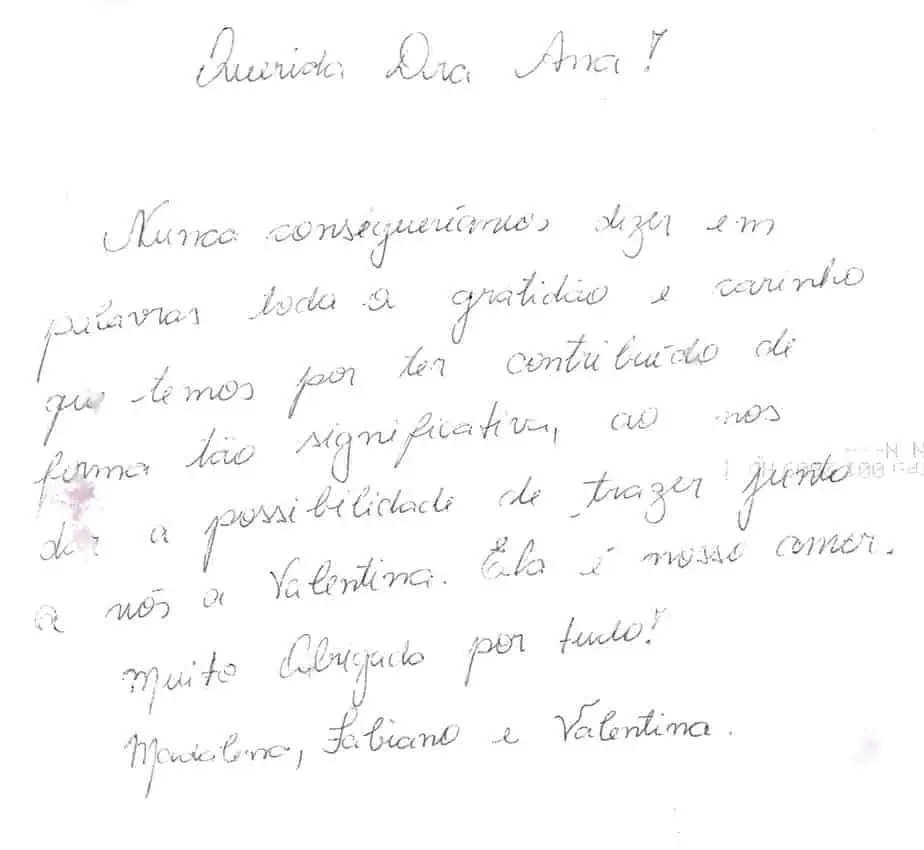 Querida Dra Ana!
Nunca conseguiríamos dizer em
palavras toda a gratidão e carinho
que temos por ter contribuído de
forma tão significativa, ao nos
dar a possibilidade de trazer junto
a nós a Valentina. Ela é nosso amor.
Muito Obrigado por tudo!
Madalena, Fabiano e Valentina.